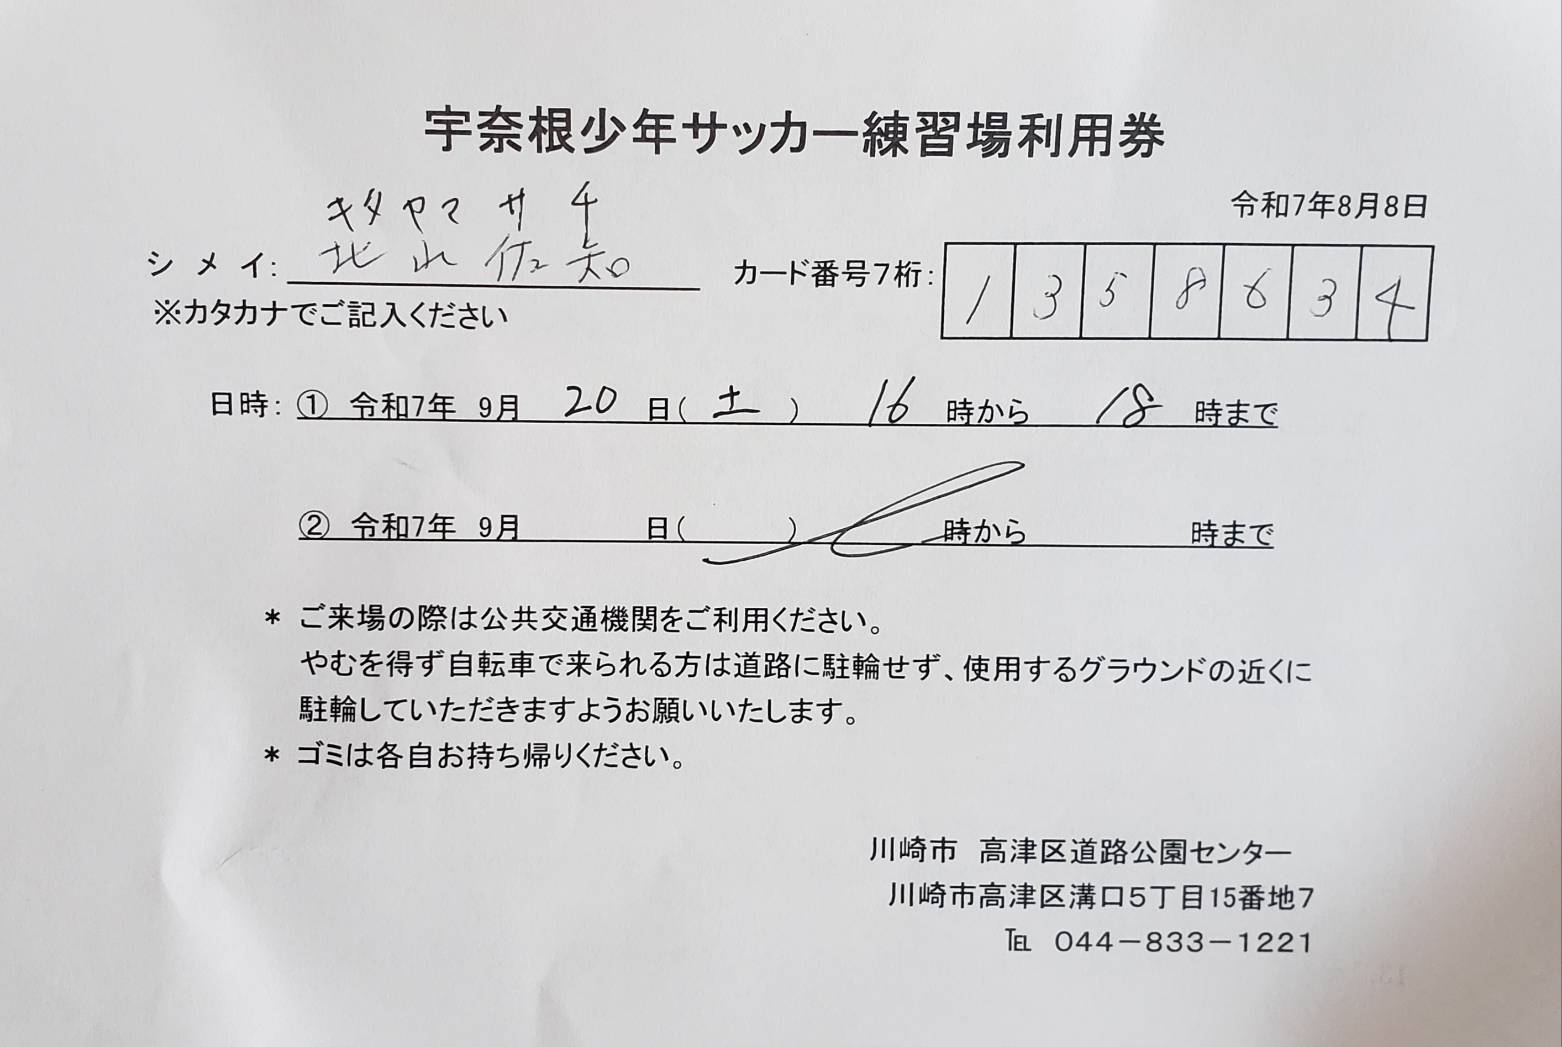 宇奈根少年サッカー練習場利用券
令和7年8月8日
キタヤマ サチ
シメイ: 北山佐知
カード番号7桁: 1 3 5 8 6 3 4
※カタカナでご記入ください
日時: ① 令和7年 9月 20 日( 土 ) 16 時から 18 時まで
② 令和7年 9月 日( ) 時から 時まで
* ご来場の際は公共交通機関をご利用ください。
やむを得ず自転車で来られる方は道路に駐輪せず、使用するグラウンドの近くに
駐輪していただきますようお願いいたします。
* ゴミは各自お持ち帰りください。
川崎市 高津区道路公園センター
川崎市高津区溝口5丁目15番地7
℡ 044-833-1221